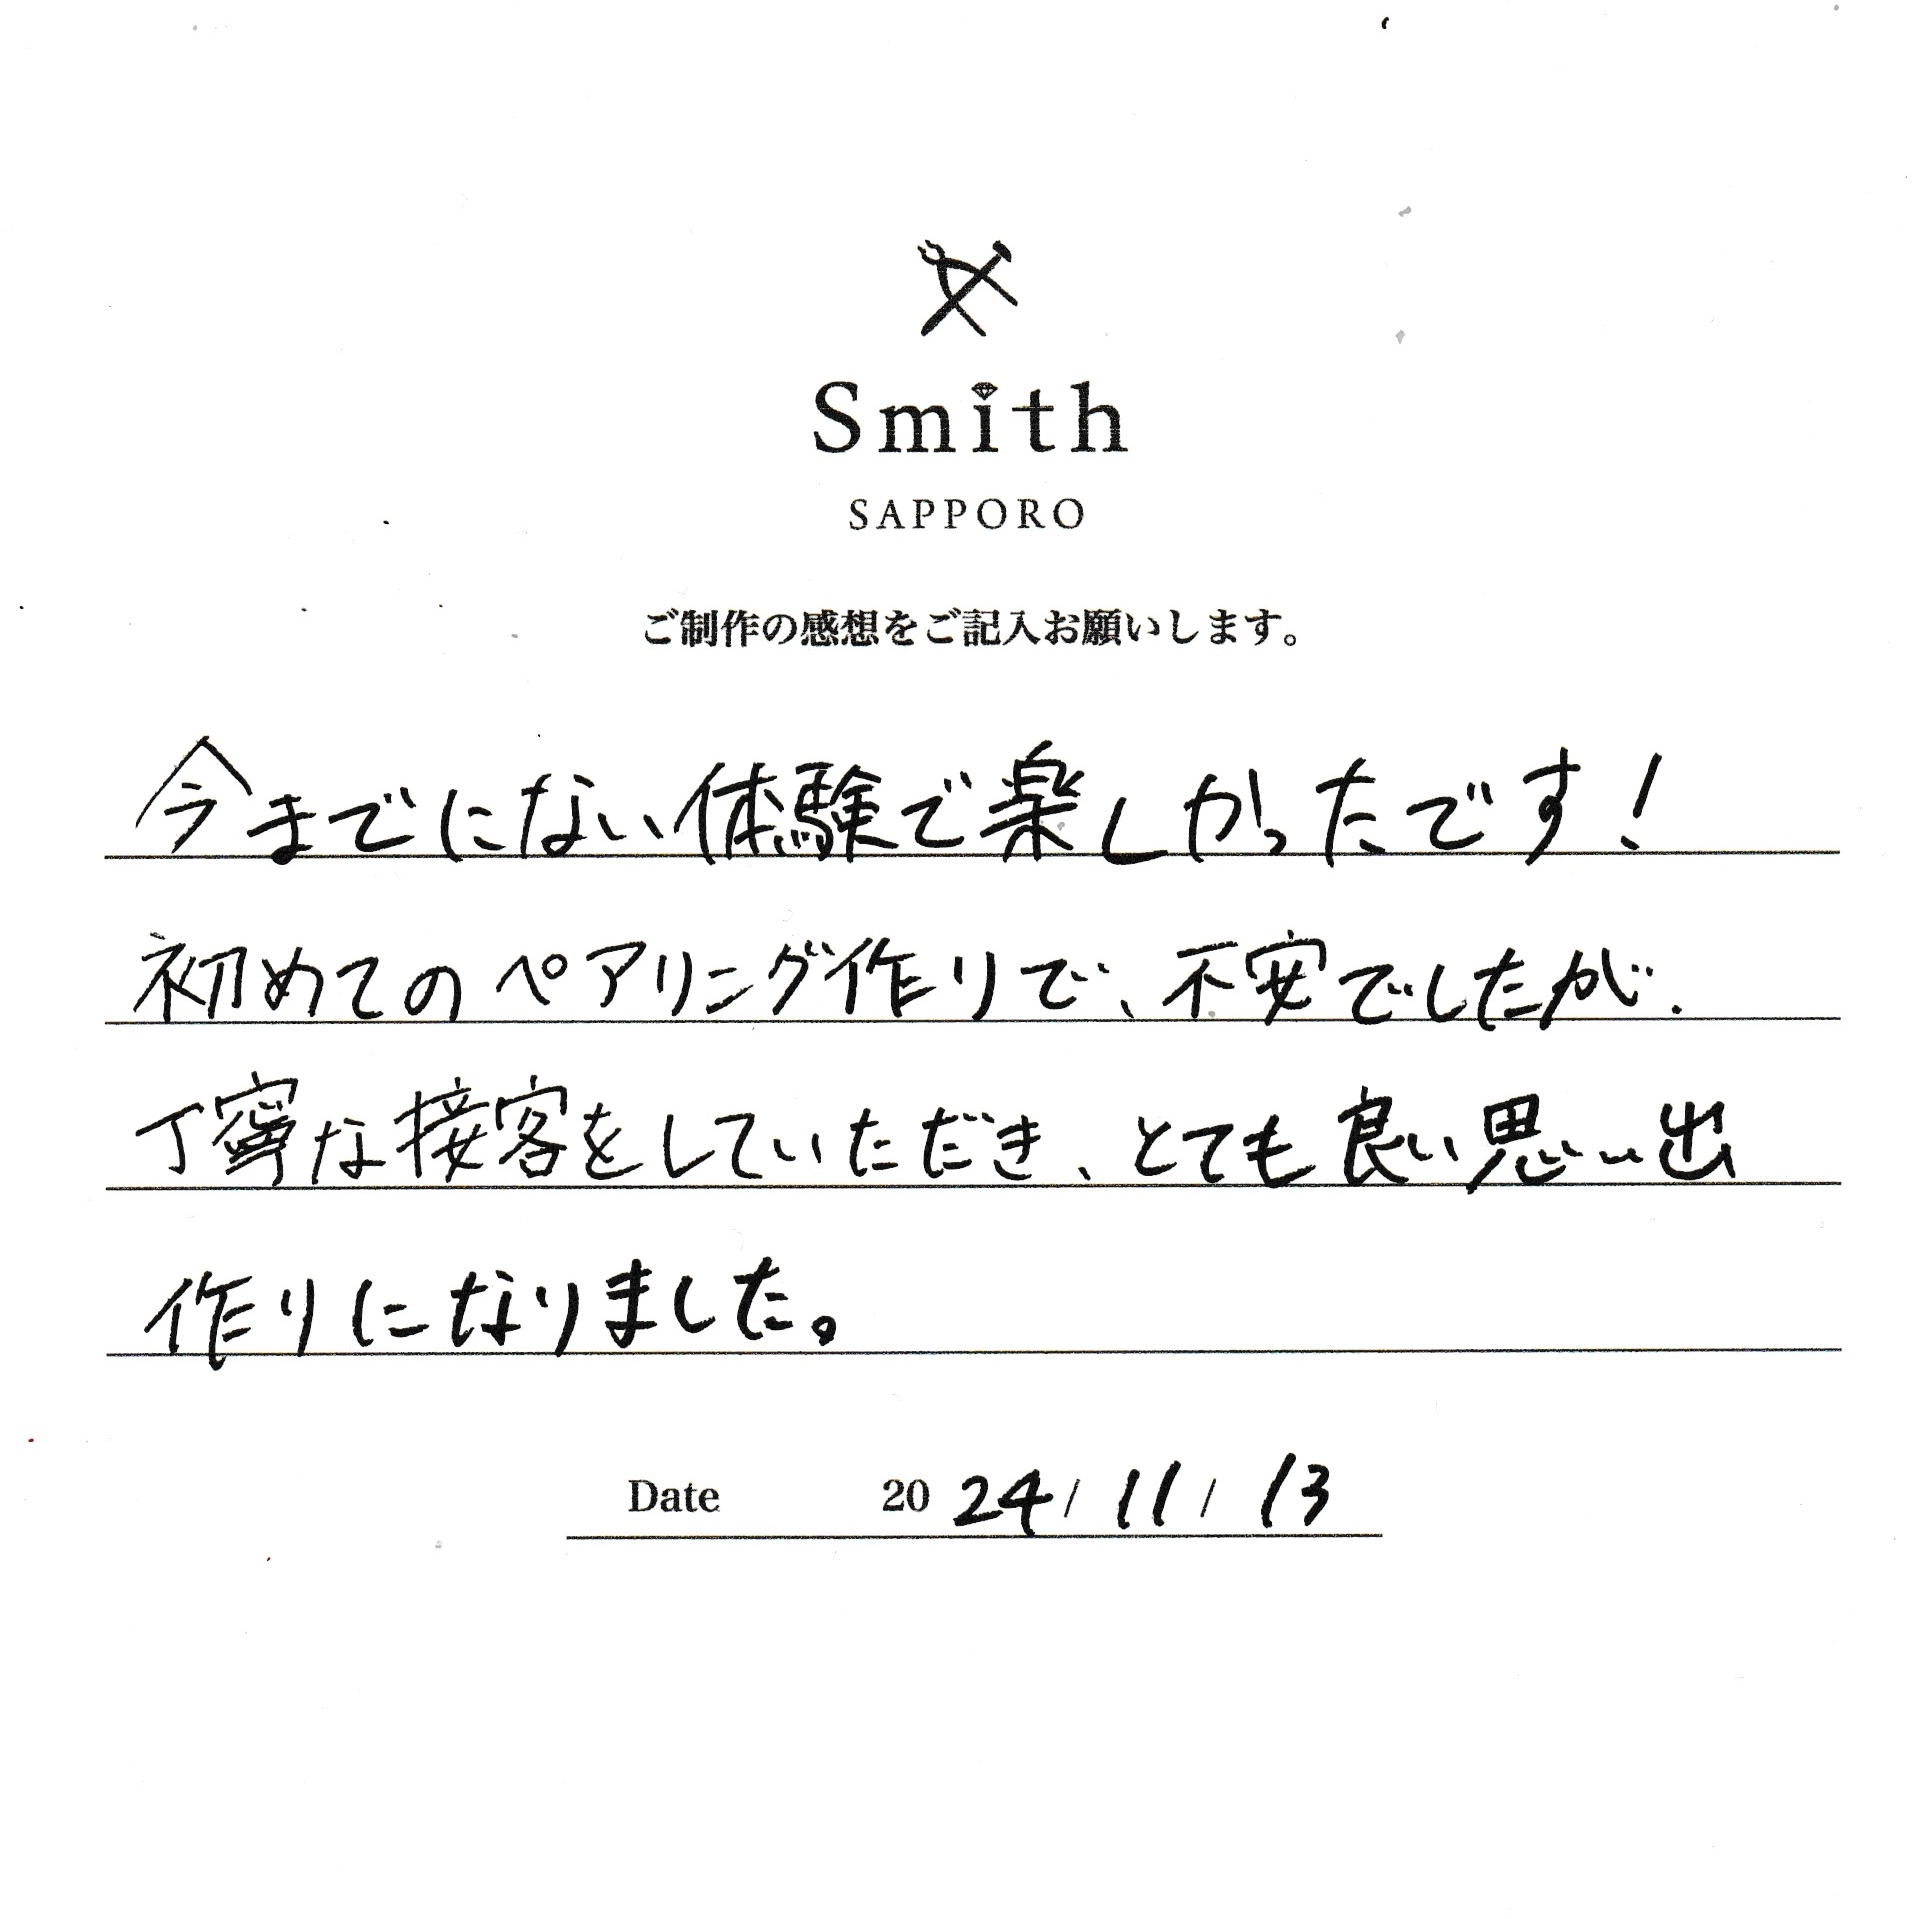 Smith
SAPPORO
ご制作の感想をご記入お願いします。
今までにない体験で楽しかったです!
初めてのペアリング作りで、不安でしたが、
丁寧な接客をしていただき、とても良い思い出
作りになりました。
Date 2024/11/13